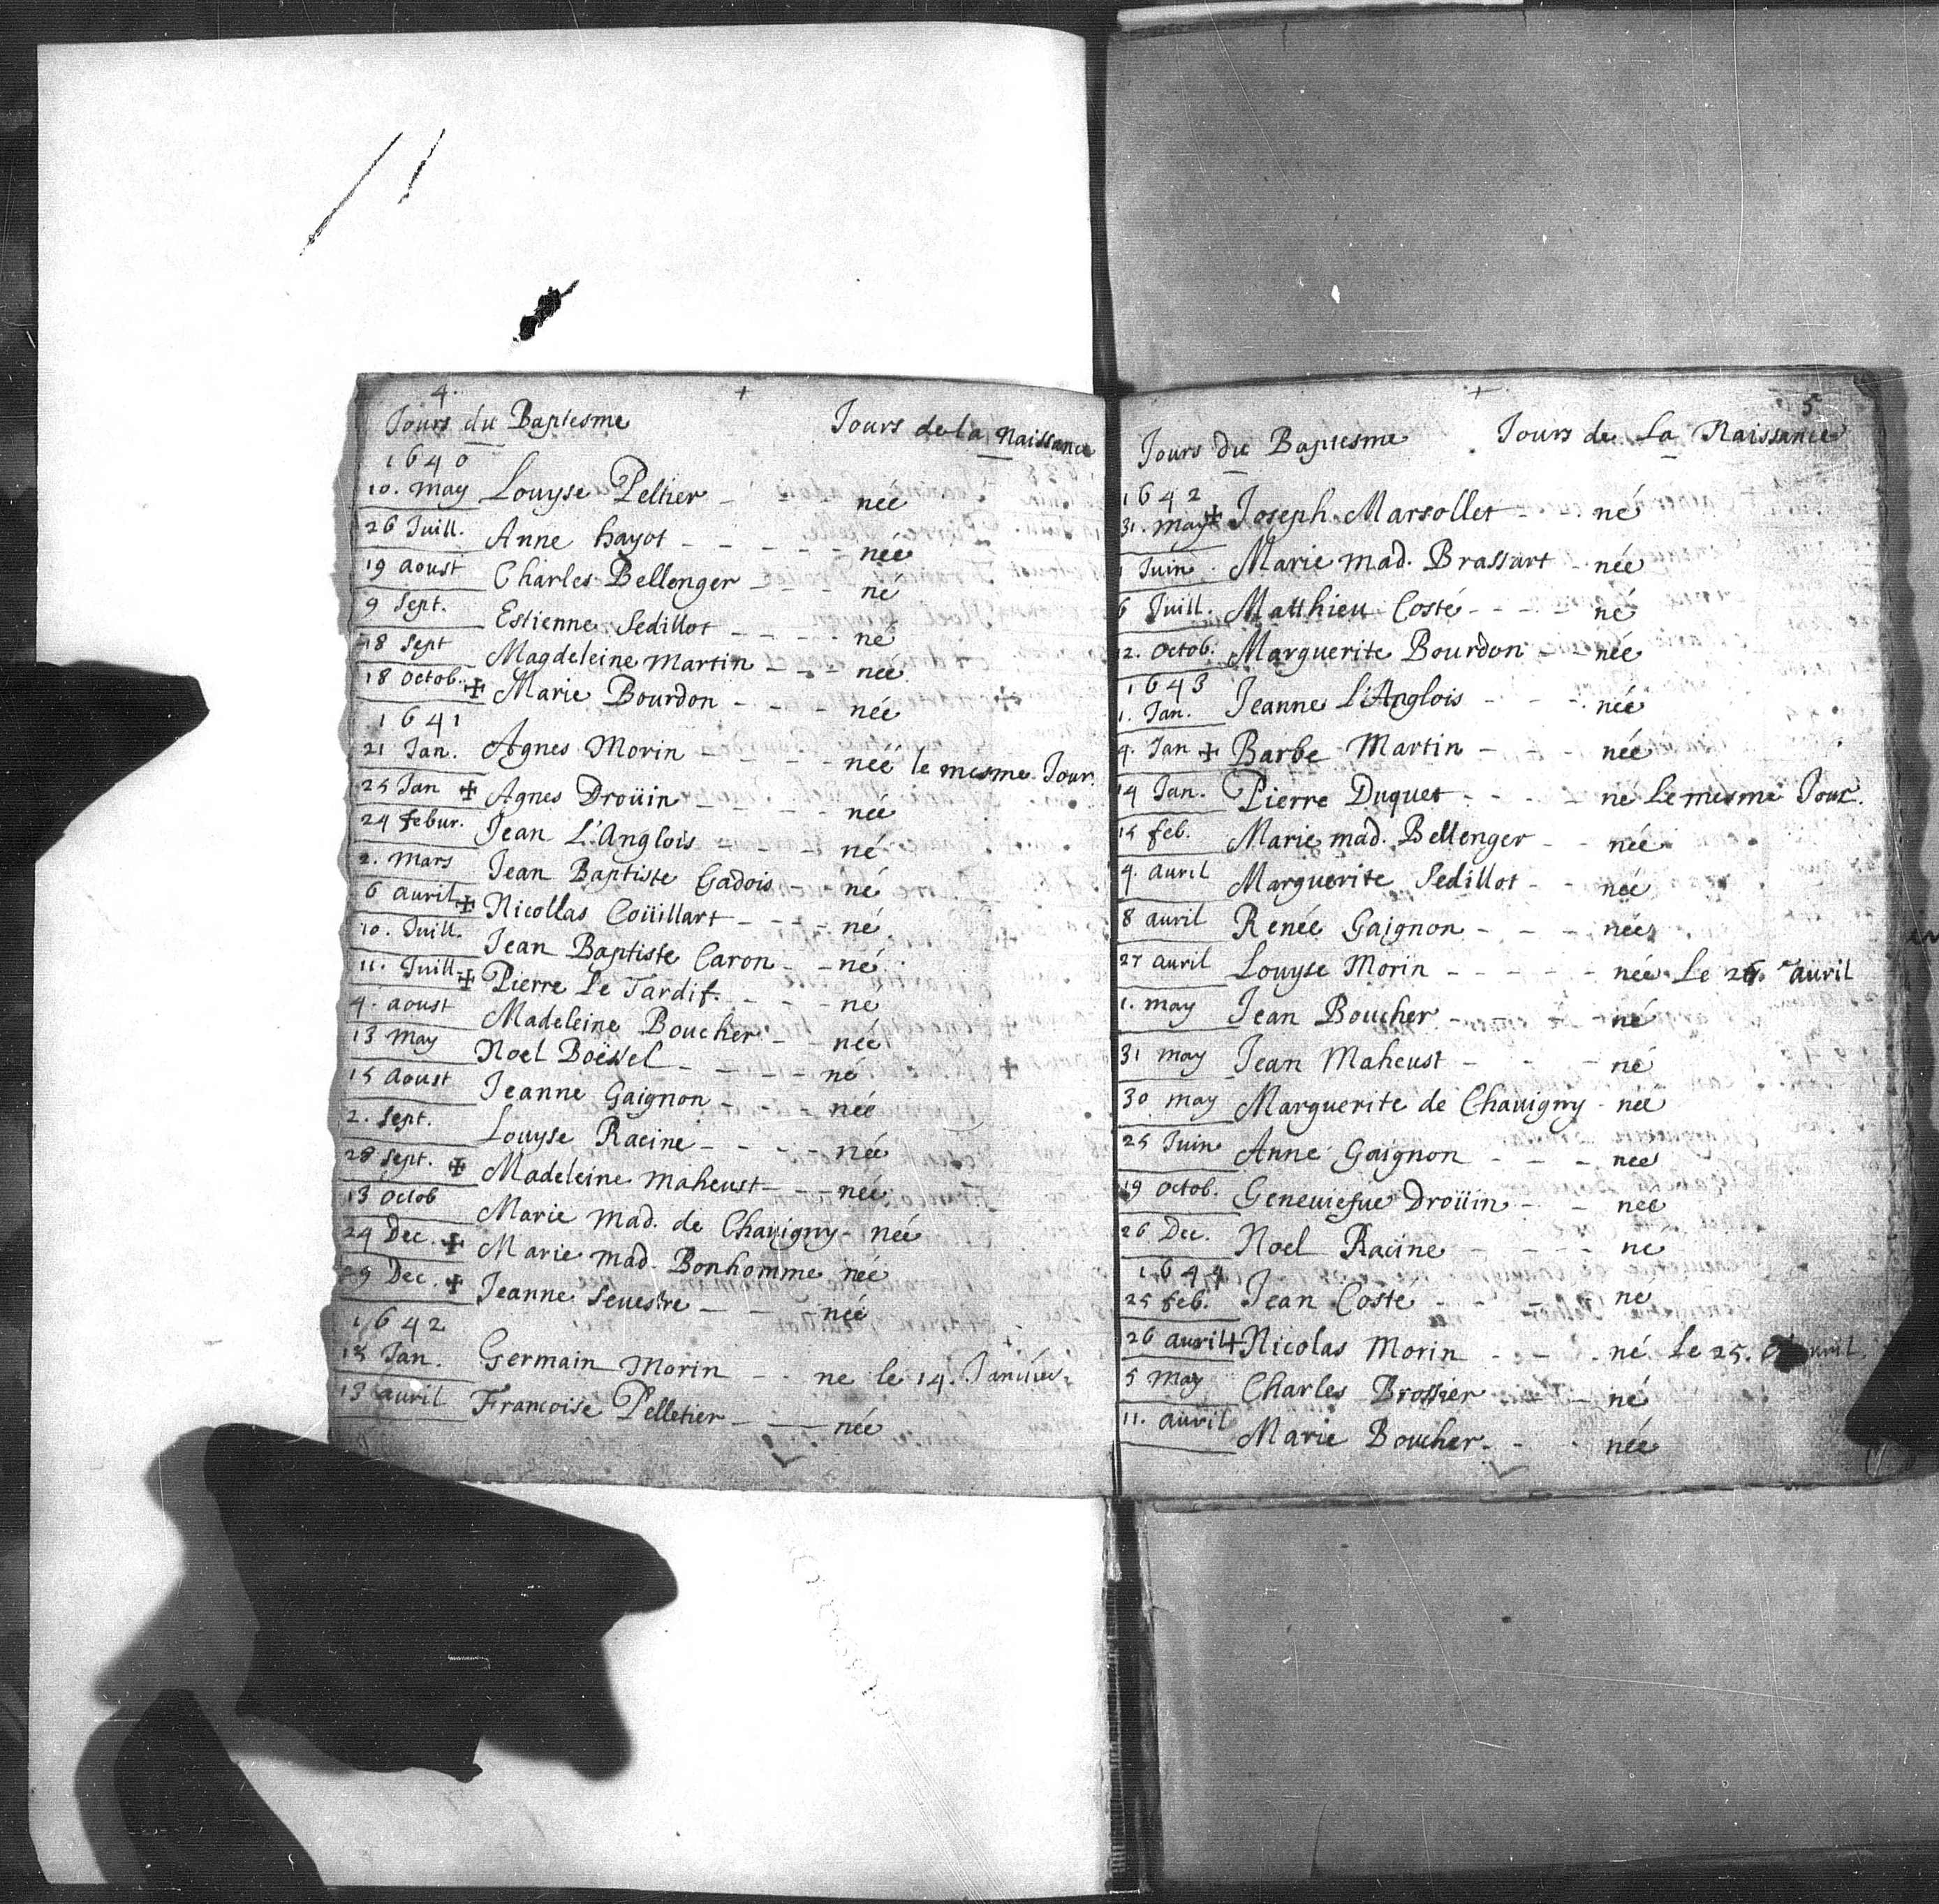 4.
+
Jours du Baptesme Jours de la Naissance
1640
10. May Louyse Peltier - née
26 Juill. Anne hayot - - - - - née
19 Aoust Charles Bellenger - - - né
9 Sept. Estienne Sedillot - - - - né
18 Sept Magdeleine Martin - - - née
18 Octob. ✠ Marie Bourdon - - - née
1641
21 Jan. Agnes Morin - - - - née le mesme Jour
25 Jan ✠ Agnes Droüin - - - - née
24 febur. Jean L'Anglois né
2. Mars Jean Baptiste Gadois - né
6 auril ✠ Nicollas Coüillart - - - né
10. Juill. Jean Baptiste Caron - - né
11. Juill ✠ Pierre Le Tardif. - - - né
4. aoust Madeleine Boucher - - née
13 May Noel Boëssel - - - - né
15 Aoust Jeanne Gaignon - - - née
2. Sept. Louyse Racine - - - - née
28 Sept. ✠ Madeleine maheust - - née
13 Octob Marie Mad. de Chauigny - née
24 Dec. ✠ Marie mad. Bonhomme née
29 Dec. ✠ Jeanne Seuestre - - - née
1642
15 Jan. Germain Morin - - né le 14. Januier.
13 auril Francoise Pelletier - - - née
+
5
Jours du Baptesme Jours de La Naissance
1642
31. may ✠ Joseph Marsollet - - né
Juin Marie mad. Brassart - née
6 Juill. Matthieu Costé - - - né
12. Octob. Marguerite Bourdon - - née
1643
1. Jan. Jeanne L'Anglois - - - née
4. Jan ✠ Barbe Martin - - - née
14 Jan. Pierre Duquet - - - né Le mesme Jour.
15 feb. Marie mad. Bellenger - - née
4. auril Marguerite Sedillot - - née
8 auril Renée Gaignon - - - née
27 auril Louyse Morin - - - - - née Le 26. auril
1. may Jean Boucher - - - né
31 may Jean Maheust - - - né
30 may Marguerite de Chauigny - née
25 Juin Anne Gaignon - - - née
19 Octob. Geneuiefue Droüin - - née
26 Dec. Noel Racine - - - - né
1644
25 feb. Jean Coste - - - né
26 auril + Nicolas Morin - - - né Le 25. auril.
5 May Charles Brossier - - né
11. auril Marie Boucher - - - née